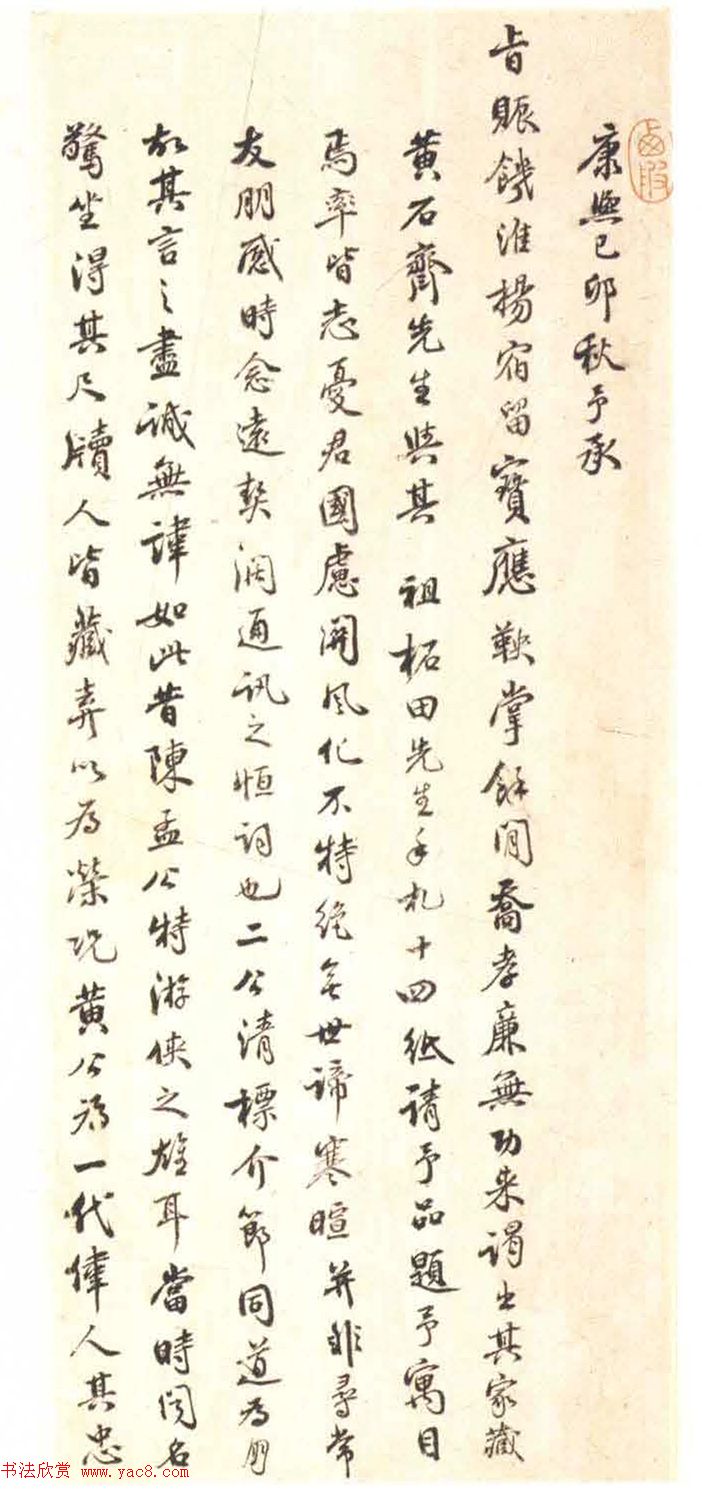 康熙己卯秋予承
旨賑饑淮楊宿留寶應鞅掌餘閒喬孝廉無功来謁出其家藏
黄石齋先生與其 祖柘田先生手札十四紙請予品題予寓目
焉率皆志憂君國慮關風化不特絶無世諦寒暄并非尋常
友朋感時念遠契濶通訊之恒詞也二公清標介節同道為朋
故其言之盡誠無諱如此昔陳孟公特游俠之雄耳當時聞名
驚坐得其尺牘人皆藏弆以為榮况黄公為一代偉人其忠
书法欣赏 www.yac8.com